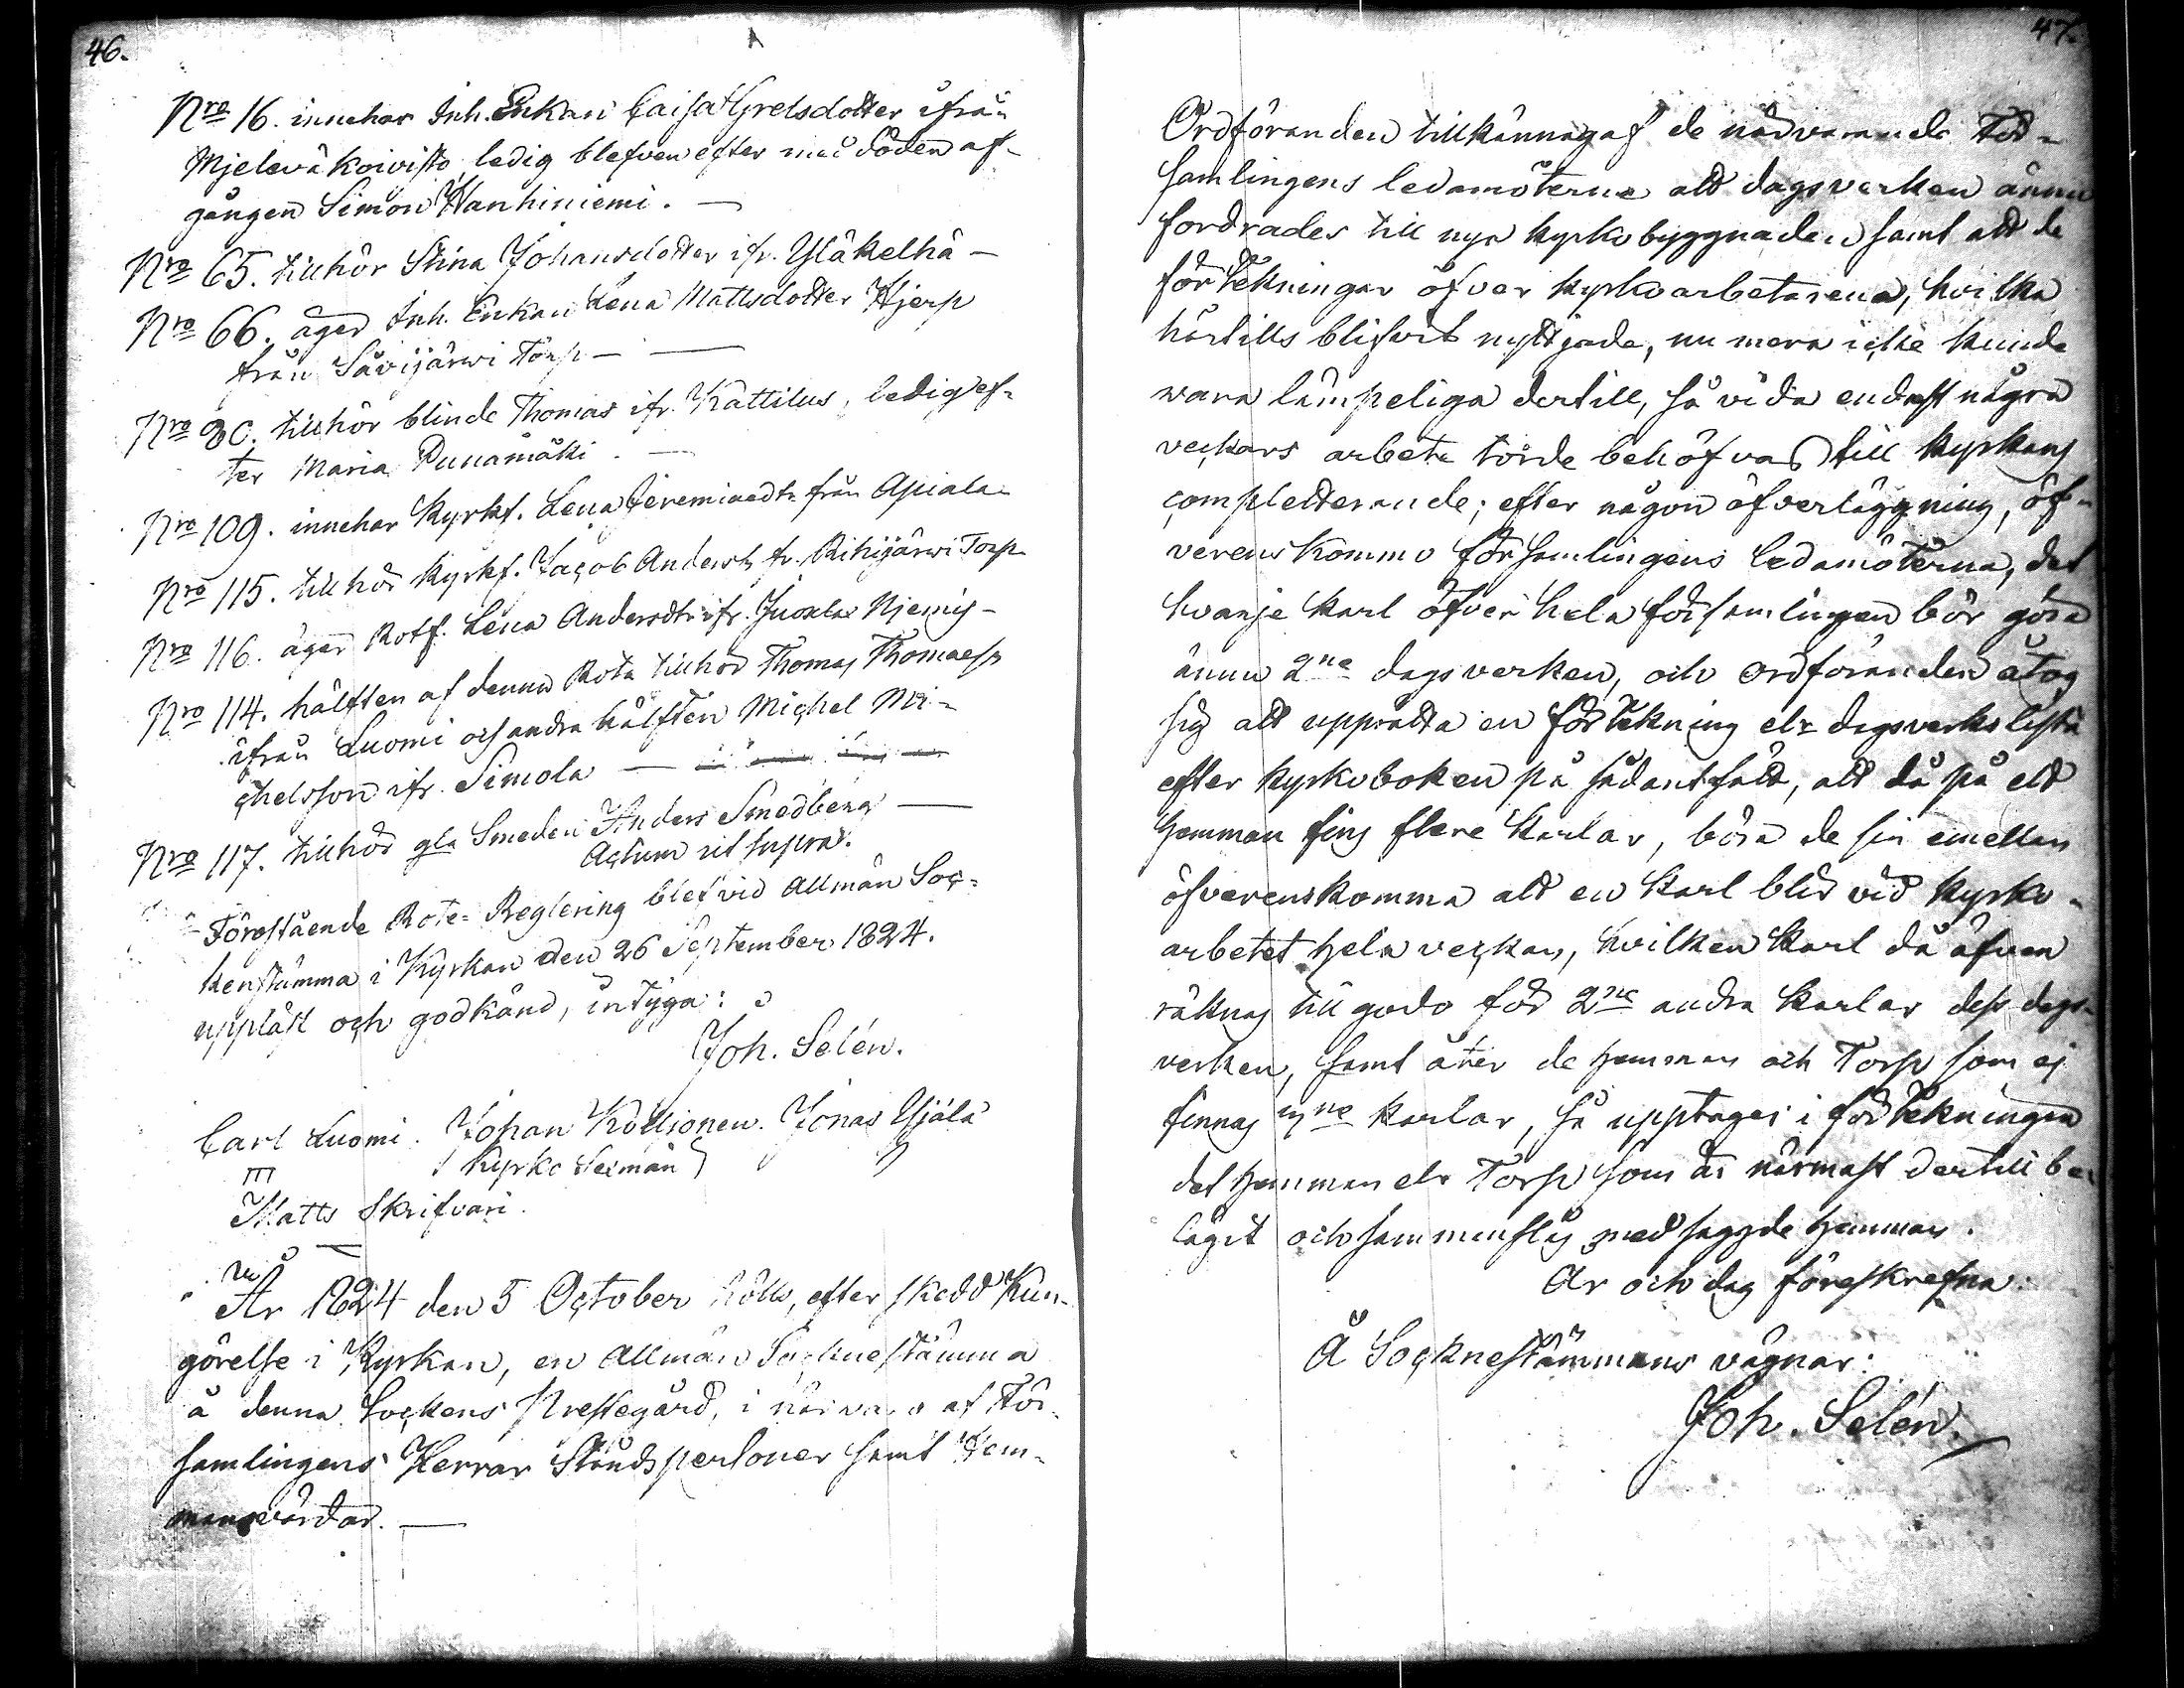 46.
Nro 16. innehar Inh. Enkan Caisa Gretsdotter ifrån
Mjelevä koivisto ledig blefven efter med döden af-
gången Simon Hanhiniemi. —
Nro 65. tillhör Stina Johansdotter ifr. Yläkelhä —
Nro 66. äger Inh. Enkan Lena Mattsdotter Hjerp
från Säviijärwi Torp — —
Nro 80. tillhör blinde Thomas ifr. Kattilus, ledig ef-
ter Maria Punamäki. —
Nro 109. innehar Kyrkf. Lena Jeremiaedtr från Apiala
Nro 115. tillhör Kyrkf. Jacob Anderss. fr. Rihijärwi Torp
Nro 116. äger Rotf. Lena Andersdtr ifr. Juoxla Njemis —
Nro 114. hälften af denna Rota tillhör Thomas Thomaess
ifrån Luomi och andra hälften Michel Mi-
chelsson ifr. Simola —
Nro 117. tillhör gla Smeden Anders Smedberg —
Actum ut supra.
Förestående Rote-Reglering blef vid Allmän Soc-
kenstämma i Kyrkan den 26 September 1824.
uppläst och godkänd, intyga:
Joh. Selén.
Carl Luomi. Johan Kollionen. Jonas Yjälä
Kyrko Sexmän
Matts Skrifvari.
År 1824 den 5 October hölls, efter skedd Kun-
görelse i Kyrkan, en Allmän Socknestämma
å denna Sockens Prestegård, i närvaro af För-
samlingens Herrar Ståndspersoner samt Hem-
mansvärdar. —
47.
Ordföranden tillkännagaf de närvarande För-
samlingens ledamöterne att dagsverken ännu
fordrades till nya kyrkobyggnaden samt att de
förtekningar öfver kyrkoarbetarena, hvilka
härtills blifvit nyttjade, nu mera icke kunde
wara lämpeliga dertill, så vida endast några
veckors arbete torde behöfvas till kyrkans
completterande; efter någon öfverläggning, öf-
verenskommo församlingens ledamöterna, det
hvarje karl öfver hela församlingen bör göra
ännu 2ne dagsverken, och ordföranden åtog
sig att upprätta en förtekning elr dagsverkslista
efter kyrkoboken på sådant sätt, att då på ett
hemman fins flere karlar, böra de sin emellan
öfverenskomma att en karl blir vid kyrko-
arbetet hela veckan, hvilken karl då äfven
räknas till godo för 2ne andra karlar dess dags-
verken, samt åter de hemman och Torp som ej
finnas 3ne karlar, så upptages i förtekningen
det hemman elr Torp som är närmast dertill be-
lägit och sammanslås med sagde hemman.
År och dag föreskrefna:
Å Socknestämmans vägnar:
Joh. Selén.